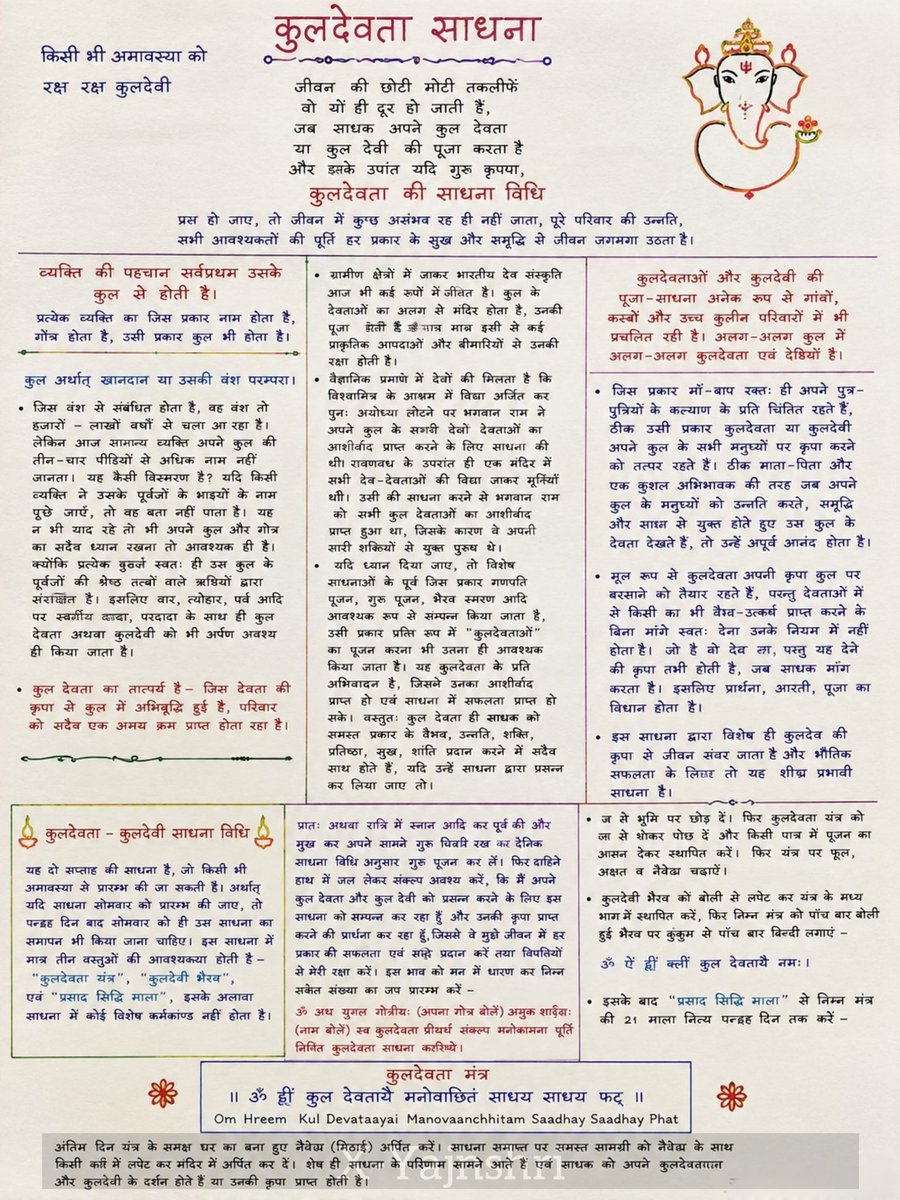 कुलदेवता साधना
किसी भी अमावस्या को
रक्ष रक्ष कुलदेवी
जीवन की छोटी मोटी तकलीफें
वो यों ही दूर हो जाती हैं,
जब साधक अपने कुल देवता
या कुल देवी की पूजा करता है
और इसके उपांत यदि गुरू कृपया,
कुलदेवता की साधना विधि
प्रस हो जाए, तो जीवन में कुछ असंभव रह ही नहीं जाता, पूरे परिवार की उन्नति,
सभी आवश्यकतों की पूर्ति हर प्रकार के सुख और समृद्धि से जीवन जगमगा उठता है।
व्यक्ति की पहचान सर्वप्रथम उसके
कुल से होती है।
प्रत्येक व्यक्ति का जिस प्रकार नाम होता है,
गोंत्र होता है, उसी प्रकार कुल भी होता है।
कुल अर्थात् खानदान या उसकी वंश परम्परा।
• जिस वंश से संबंधित होता है, वह वंश तो
हजारों – लाखों वर्षों से चला आ रहा है।
लेकिन आज सामान्य व्यक्ति अपने कुल की
तीन-चार पीढियों से अधिक नाम नहीं
जानता। यह कैसी विस्मरण है? यदि किसी
व्यक्ति ने उसके पूर्वजों के भाइयों के नाम
पूछे जाएँ, तो वह बता नहीं पाता है। यह
न भी याद रहे तो भी अपने कुल और गोत्र
का सदैव ध्यान रखना तो आवश्यक ही है।
क्योंकि प्रत्येक स्वतः ही उस कुल के
पूर्वजों की श्रेष्ठ तत्बों वाले ऋषियों द्वारा
संरक्षित है। इसलिए वार, त्योहार, पर्व आदि
पर स्वर्गीय परदादा के साथ ही कुल
देवता अथवा कुलदेवी को भी अर्पण अवश्य
ही किया जाता है।
• कुल देवता का तात्पर्य है – जिस देवता की
कृपा से कुल में अभिबृद्धि हुई है, परिवार
को सदैव एक अमय क्रम प्राप्त होता रहा है।
• ग्रामीण क्षेत्रों में जाकर भारतीय देव संस्कृति
आज भी कई रूपों में जीवित है। कुल के
देवताओं का अलग से मंदिर होता है, उनकी
पूजा होती हैं मात्र इसी से कई
प्राकृतिक आपदाओं और बीमारियों से उनकी
रक्षा होती है।
• वैज्ञानिक प्रमाणे में देवों की मिलता है कि
विश्वामित्र के आश्रम में विद्या अर्जित कर
पुनः अयोध्या लोटने पर भगवान राम ने
अपने कुल के सगरी देवों देवताओं का
आशीर्वाद प्राप्त करने के लिए साधना की
थी। रावणवध के उपरांत ही एक मंदिर में
सभी देव-देवताओं की विद्या जाकर मूर्नियां
थी। उसी की साधना करने से भगवान राम
को सभी कुल देवताओं का आशीर्वाद
प्राप्त हुआ था, जिसके कारण वे अपनी
सारी शक्तियों से युक्त पुरुष थे।
• यदि ध्यान दिया जाए, तो विशेष
साधनाओं के पूर्व जिस प्रकार गणपति
पूजन, गुरू पूजन, भैरव स्मरण आदि
आवश्यक रूप से संपन्न किया जाता है,
उसी प्रकार प्रत्ति रूप में "कुलदेवताओं"
का पूजन करना भी उतना ही आवश्यक
किया जाता है। यह कुलदेवता के प्रति
अभिवादन है, जिसने उनका आशीर्वाद
प्राप्त हो एवं साधना में सफलता प्राप्त हो
सके। वस्तुतः कुल देवता ही साधक को
समस्त प्रकार के वैभव, उन्नति, शक्ति,
प्रतिष्ठा, सुख, शांति प्रदान करने में सदैव
साथ होते हैं, यदि उन्हें साधना द्वारा प्रसन्न
कर लिया जाए तो।
कुलदेवताओं और कुलदेवी की
पूजा-साधना अनेक रूप से गांवों,
कस्बों और उच्च कुलीन परिवारों में भी
प्रचलित रही है। अलग-अलग कुल में
अलग-अलग कुलदेवता एवं देडियों है।
• जिस प्रकार माँ-बाप रक्तः ही अपने पुत्र-
पुत्रियों के कल्याण के प्रति चिंतित रहते हैं,
ठीक उसी प्रकार कुलदेवता या कुलदेवी
अपने कुल के सभी मनुष्यों पर कृपा करने
को तत्पर रहते हैं। ठीक माता-पिता और
एक कुशल अभिभावक की तरह जब अपने
कुल के मनुष्यों को उन्नति करते, समृद्धि
और साधन से युक्त होते हुए उस कुल के
देवता देखते हैं, तो उन्हें अपूर्व आनंद होता है।
• मूल रूप से कुलदेवता अपनी कृपा कुल पर
बरसाने को तैयार रहते हैं, परन्तु देवताओं में
से किसी का भी वैभ्व-उत्कर्ष प्राप्त करने के
बिना मांगे स्वतः देना उनके नियम में नहीं
होता है। जो है वो देव ला, परस्तु यह देने
की कृपा तभी होती है, जब साधक माँग
करता है। इसलिए प्रार्थना, आरती, पूजा का
विधान होता है।
• इस साधना द्वारा विशेष ही कुलदेव की
कृपा से जीवन संवर जाता है और भौतिक
सफलता के लिए तो यह शीघ्र प्रभावी
साधना है।
कुलदेवता – कुलदेवी साधना विधि
यह दो सप्ताह की साधना है, जो किसी भी
अमावस्या से प्रारम्भ की जा सकती है। अर्थात्
यदि साधना सोमवार को प्रारम्भ की जाए, तो
पन्द्रह दिन बाद सोमवार को ही उस साधना का
समापन भी किया जाना चाहिए। इस साधना में
मात्र तीन वस्तुओं की आवश्यकया होती है –
"कुलदेवता यंत्र", "कुलदेवी भैरव",
एवं "प्रसाद सिद्धि माला", इसके अलावा
साधना में कोई विशेष कर्मकांण्ड नहीं होता है।
प्रातः अथवा रात्रि में स्नान आदि कर पूर्व की और
मुख कर अपने सामने गुरू चित्र रख कर दैनिक
साधना विधि अनुसार गुरू पूजन कर लें। फिर दाहिने
हाथ में जल लेकर संकल्प अवश्य करें, कि मैं अपने
कुल देवता और कुल देवी को प्रसन्न करने के लिए इस
साधना को सम्पन्न कर रहा हूँ और उनकी कृपा प्राप्त
करने की प्रार्थना कर रहा हूँ, जिससे वे मुझे जीवन में हर
प्रकार की सफलता एवं प्रदान करें तया विपत्तियों
से मेरी रक्षा करें। इस भाव को मन में धारण कर निम्न
सकेत संख्या का जप प्रारम्भ करें –
ॐ अथ युगल गोत्रीयः (अपना गोत्र बोलें) अमुक
(नाम बोलें) स्व कुलदेवता प्रीयर्थ संकल्प मनोकामना पूर्ति
कुलदेवता साधना कररिष्ये।
• ज से भूमि पर छोड़ दें। फिर कुलदेवता यंत्र को
जा से धोकर पोछ दें और किसी पात्र में पूजन का
आसन देकर स्थापित करें। फिर यंत्र पर फूल,
अक्षत व नैवेद्य चढ़ाऐं।
• कुलदेवी भैरव को बोली से लपेट कर यंत्र के मध्य
भाग में स्थापित करें, फिर निम्न मंत्र को पाँच बार बोली
हुई भैरव पर कुंकुम से पाँच बार बिन्दी लगाएं –
ॐ ऐं ह्रीं क्लीं कुल देवतायै नमः।
• इसके बाद "प्रसाद सिद्धि माला" से निम्न मंत्र
की 21 माला नित्य पन्द्रह दिन तक करें –
कुलदेवता मंत्र
॥ ॐ ह्रीं कुल देवतायै मनोवाछितं साधय साधय फट् ॥
Om Hreem Kul Devataayai Manovaanchhitam Saadhay Saadhay Phat
अंतिम दिन यंत्र के समक्ष घर का बना हुए नैवेद्य (मिठाई) अर्पित करें। साधना समाप्त पर समस्त सामग्री को नैवेद्य के साथ
किसी में लपेट कर मंदिर में अर्पित कर दें। शेष ही साधना के परिणाम सामने आते हैं एवं साधक को अपने
और कुलदेवी के दर्शन होते हैं या उनकी कृपा प्राप्त होती है।
X Yajnshri